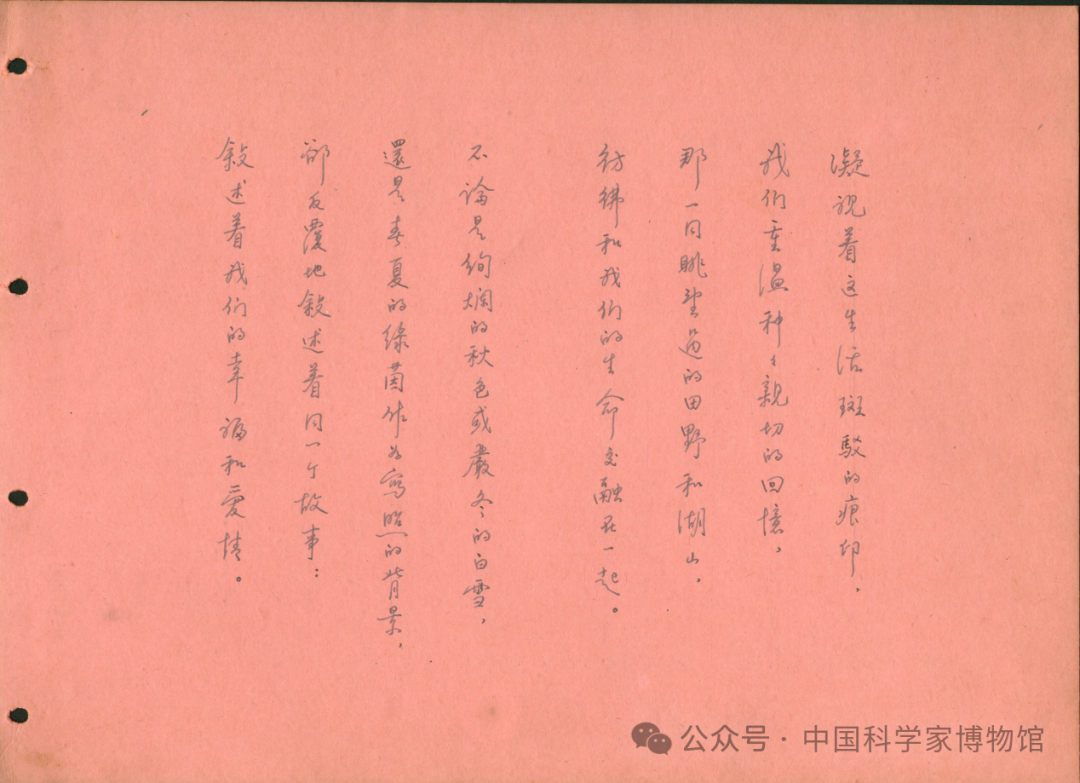 凝视着这生活斑駁的痕印，
我们重温种々親切的回憶，
那一同眺望过的田野和湖山，
彷彿和我们的生命交融在一起。
不論是绚烂的秋色或嚴冬的白雪，
還是春夏的绿茵作为寫照的背景，
都反覆地敍述着同一个故事：
敍述着我们的幸福和爱情。
公众号·中国科学家博物馆